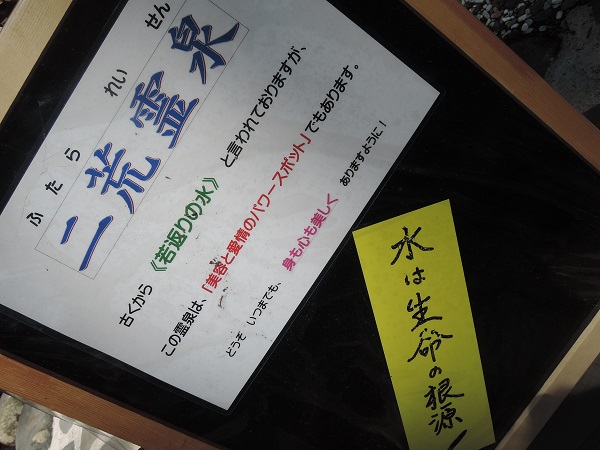 ふたら れいせん
二荒霊泉
古くから 《若返りの水》 と言われておりますが、
この霊泉は、「美容と愛情のパワースポット」でもあります。
どうぞ いつまでも、 身も心も美しく ありますように！
水は生命の根源